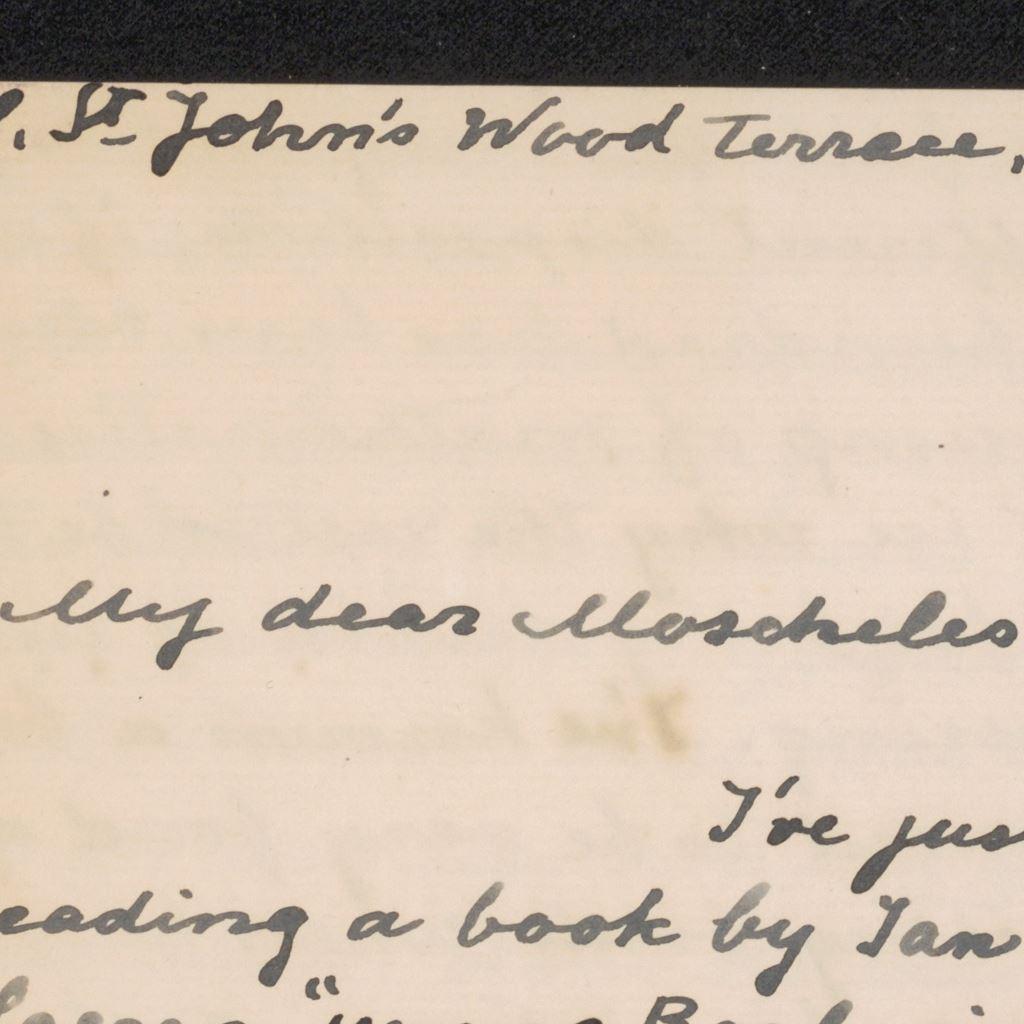 St John's Wood Terrace,
My dear Moscheles
I've jus
eading a book by Ian
"